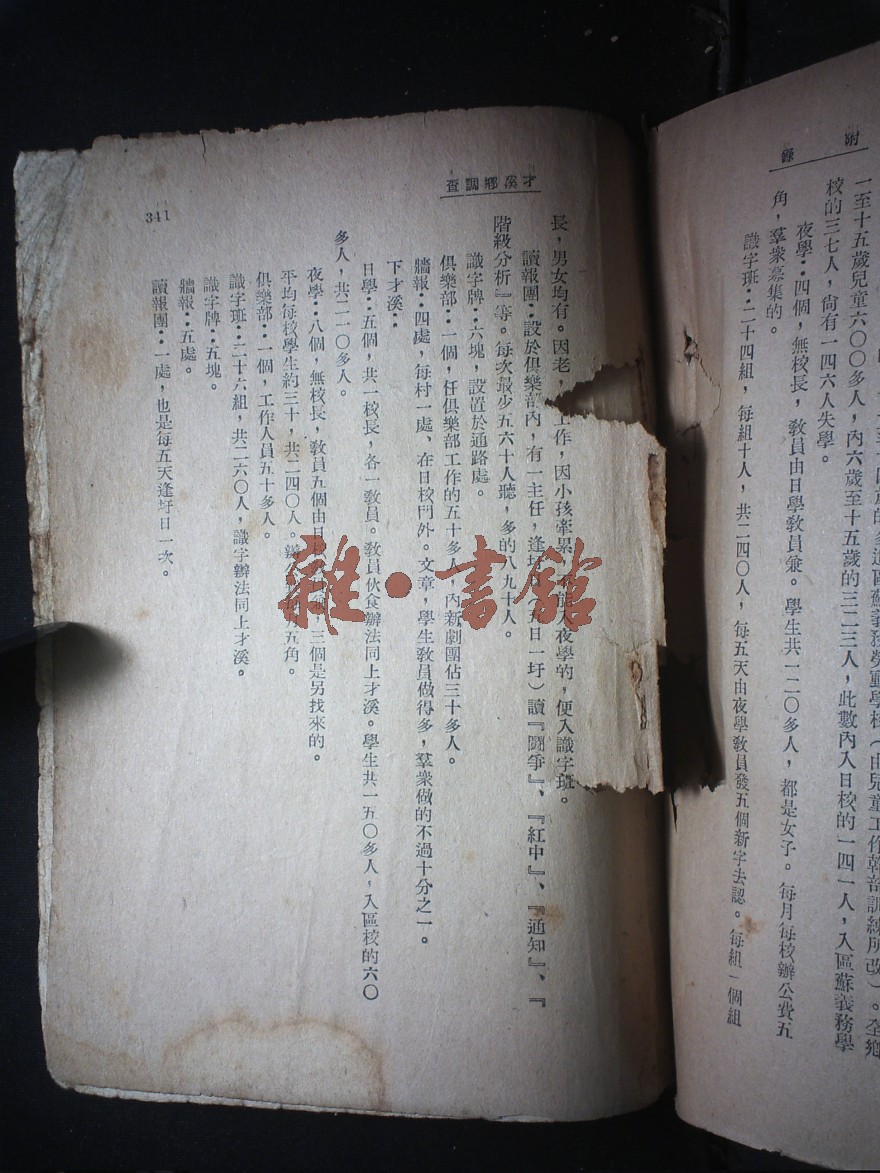 附錄
一至十五歲兒童六〇〇多人，內六歲至十五歲的三二三人，此數內入日校的一四一人，入區蘇義務學
校的三七人，尙有一四六人失學。
夜學：四個，無校長，敎員由日學敎員兼。學生共一二〇多人，都是女子。每月每校辦公費五
角，羣衆募集的。
識字班：二十四組，每組十人，共二四〇人，每五天由夜學敎員發五個新字去認。每組一個組
才溪鄉調查
長，男女均有。因老，工作，因小孩牽累，不能入夜學的，便入識字班。
讀報團：設於俱樂部內，有一主任，逢圩日（五日一圩）讀『鬪爭』、『紅中』、『通知』、『
階級分析』等。每次最少五六十人聽，多的八九十人。
識字牌：六塊，設置於通路處。
俱樂部：一個，任俱樂部工作的五十多人，內新劇團佔三十多人。
牆報：四處，每村一處、在日校門外。文章，學生敎員做得多，羣衆做的不過十分之一。
下才溪：
日學：五個，共一校長，各一敎員。敎員伙食辦法同上才溪。學生共一五〇多人，入區校的六〇
多人，共二一〇多人。
夜學：八個，無校長，敎員五個由日，三個是另找來的。
平均每校學生約三十，共二四〇人。辦公五角。
俱樂部：一個，工作人員五十多人。
識字班：二十六組，共二六〇人，識字辦法同上才溪。
識字牌：五塊。
牆報：五處。
讀報團：一處，也是每五天逢圩日一次。
341
雜·書館